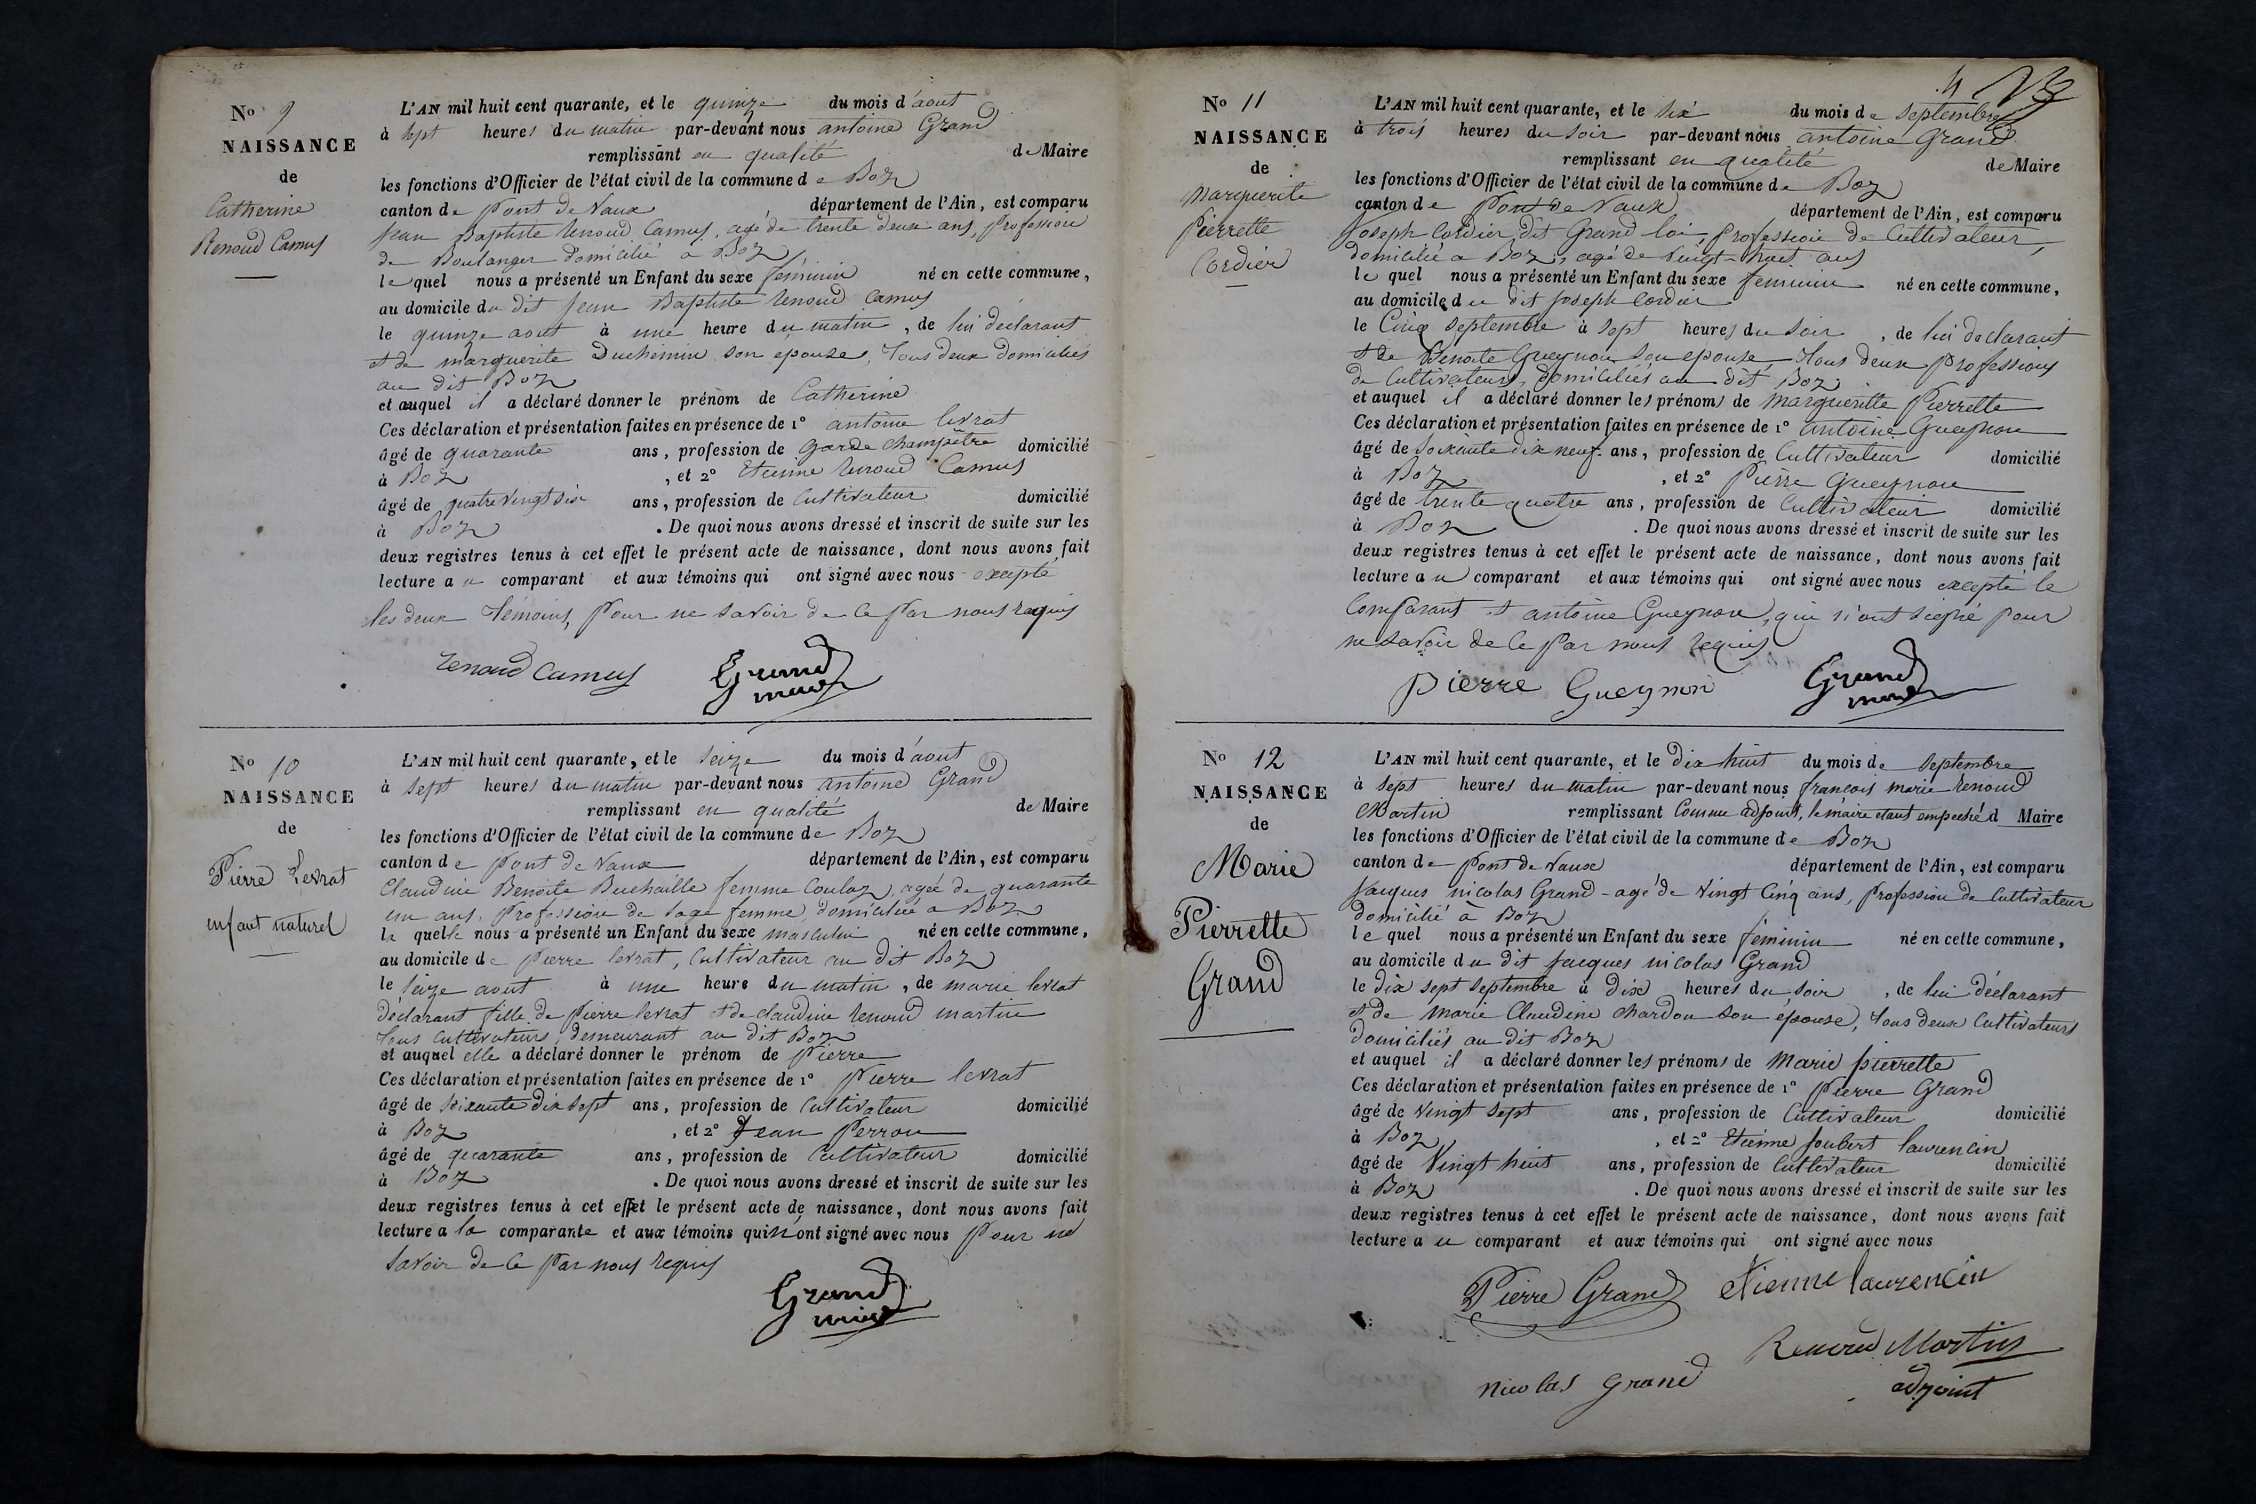 No 9
NAISSANCE
de
Catherine
Renoud Camus
L'AN mil huit cent quarante, et le quinze du mois d'aout
à sept heures du matin par-devant nous antoine Grand
remplissant en qualité de Maire
les fonctions d'Officier de l'état civil de la commune de Boz
canton de Pont de Vaux département de l'Ain, est comparu
Jean Baptiste Renoud Camus, agé de trente deux ans, profession
de Boulanger domicilié a Boz
lequel nous a présenté un Enfant du sexe féminin né en cette commune,
au domicile du dit Jean Baptiste Renoud Camus
le quinze aout à une heure du matin, de lui déclarant
et de marguerite Duchemin son épouse, tous deux domiciliés
au dit Boz
et auquel il a déclaré donner le prénom de Catherine
Ces déclaration et présentation faites en présence de 1° antoine levrat
âgé de quarante ans, profession de Garde champêtre domicilié
à Boz, et 2° Etienne Renoud Camus
âgé de quatre vingt six ans, profession de Cultivateur domicilié
à Boz. De quoi nous avons dressé et inscrit de suite sur les
deux registres tenus à cet effet le présent acte de naissance, dont nous avons fait
lecture au comparant et aux témoins qui ont signé avec nous excepté
les deux témoins, pour ne savoir de ce par nous requis
renoud Camus Grand
maire
No 10
NAISSANCE
de
Pierre Levrat
enfant naturel
L'AN mil huit cent quarante, et le seize du mois d'aout
à sept heures du matin par-devant nous antoine Grand
remplissant en qualité de Maire
les fonctions d'Officier de l'état civil de la commune de Boz
canton de Pont de Vaux département de l'Ain, est comparu
Claudine Benoite Buchaille femme Coulaz, agée de quarante
un ans, profession de sage femme, domiciliée a Boz
laquelle nous a présenté un Enfant du sexe masculin né en cette commune,
au domicile de Pierre levrat, Cultivateur au dit Boz
le seize aout à une heure du matin, de marie levrat
déclarant fille de Pierre levrat et de claudine Renoud martin
tous Cultivateurs, demeurant au dit Boz
et auquel elle a déclaré donner le prénom de Pierre
Ces déclaration et présentation faites en présence de 1° Pierre levrat
âgé de soixante dix sept ans, profession de Cultivateur domicilié
à Boz, et 2° Jean Perron
âgé de quarante ans, profession de Cultivateur domicilié
à Boz. De quoi nous avons dressé et inscrit de suite sur les
deux registres tenus à cet effet le présent acte de naissance, dont nous avons fait
lecture a la comparante et aux témoins qui n'ont signé avec nous Pour ne
savoir de ce par nous requis
Grand
maire
4
No 11
NAISSANCE
de
Marguerite
Pierrette
Cordier
L'AN mil huit cent quarante, et le six du mois de septembre
à trois heures du soir par-devant nous antoine Grand
remplissant en qualité de Maire
les fonctions d'Officier de l'état civil de la commune de Boz
canton de Pont de Vaux département de l'Ain, est comparu
Joseph Cordier dit Grand loi, profession de Cultivateur,
domicilié a Boz, agé de vingt-huit ans
lequel nous a présenté un Enfant du sexe feminin né en cette commune,
au domicile du dit Joseph Cordier
le Cinq septembre à sept heures du soir, de lui declarant
et de Benoite Gueynon son epouse, tous deux professions
de Cultivateurs, domiciliés au dit Boz
et auquel il a déclaré donner les prénoms de Margueritte Pierrette
Ces déclaration et présentation faites en présence de 1° antoine Gueynon
âgé de soixante dix neuf ans, profession de Cultivateur domicilié
à Boz, et 2° Pierre Gueynon
âgé de trente quatre ans, profession de Cultivateur domicilié
à Boz. De quoi nous avons dressé et inscrit de suite sur les
deux registres tenus à cet effet le présent acte de naissance, dont nous avons fait
lecture au comparant et aux témoins qui ont signé avec nous excepté le
Comparant et antoine Gueynon, qui n'ont signé pour
ne savoir de ce par nous requis
pierre Gueynon Grand
maire
No 12
NAISSANCE
de
Marie
Pierrette
Grand
L'AN mil huit cent quarante, et le dix huit du mois de septembre
à sept heures du matin par-devant nous françois marie Renoud
Martin remplissant Comme adjoint, le maire etant empeché d Maire
les fonctions d'Officier de l'état civil de la commune de Boz
canton de Pont de Vaux département de l'Ain, est comparu
Jacques nicolas Grand agé de vingt Cinq ans, profession de Cultivateur
domicilié à Boz
lequel nous a présenté un Enfant du sexe feminin né en cette commune,
au domicile du dit Jacques nicolas Grand
le dix sept septembre à dix heures du soir, de lui déclarant
et de Marie Claudine Chardon son épouse, tous deux Cultivateurs
domiciliés au dit Boz
et auquel il a déclaré donner les prénoms de Marie pierrette
Ces déclaration et présentation faites en présence de 1° Pierre Grand
âgé de vingt sept ans, profession de Cultivateur domicilié
à Boz, et 2° Etienne Joubert laurencin
âgé de Vingt huit ans, profession de Cultivateur domicilié
à Boz. De quoi nous avons dressé et inscrit de suite sur les
deux registres tenus à cet effet le présent acte de naissance, dont nous avons fait
lecture au comparant et aux témoins qui ont signé avec nous
Pierre Grand etienne laurencin
Renoud Martin
nicolas grand adjoint